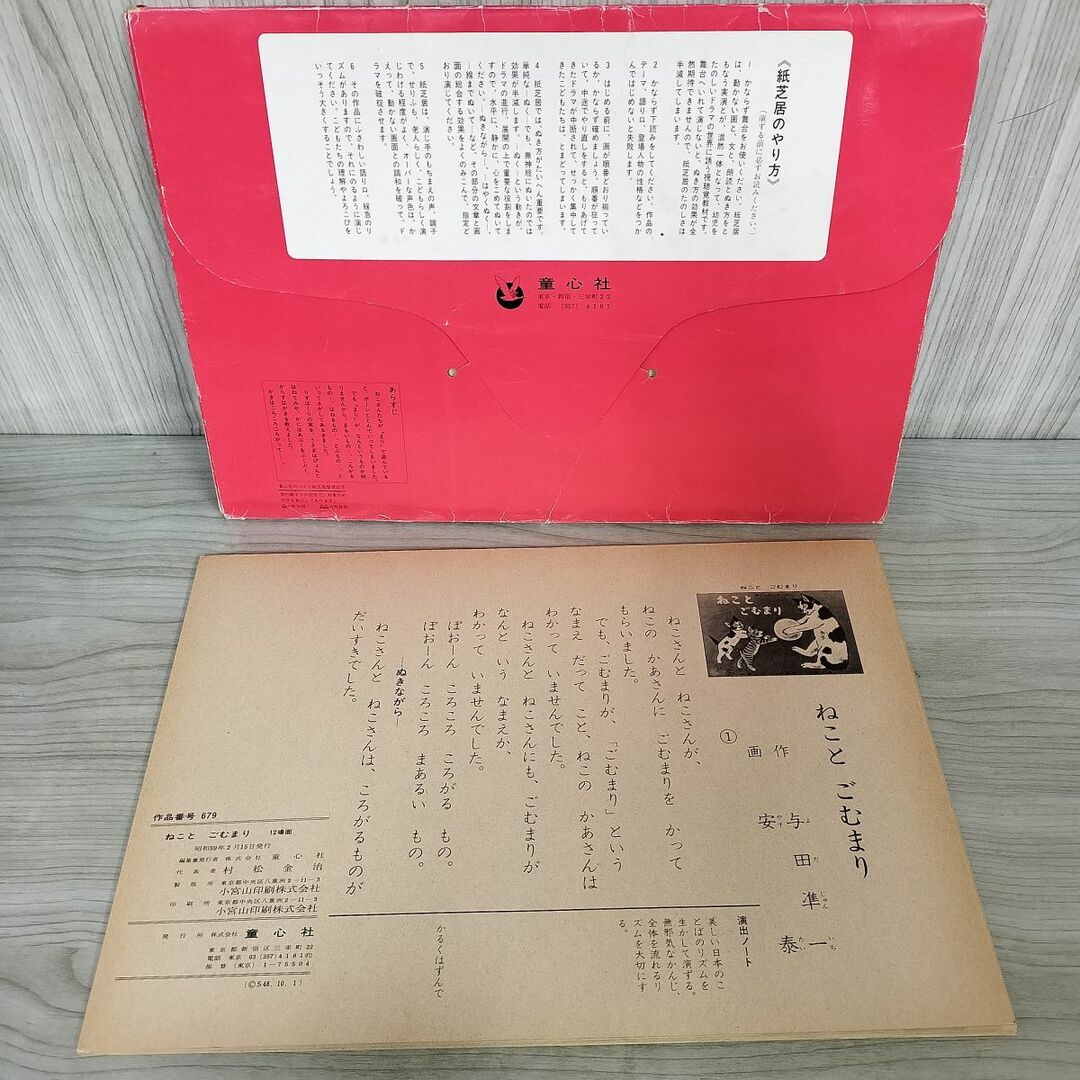 《紙芝居のやり方》
(演ずる前に必ずお読みください。)
1 かならず舞台をお使いください。紙芝居
は、動かない画と、文と、朗読とぬき方をと
もなう実演とが、混然一体となって、幼児を
たのしいドラマの世界に誘う視聴覚教材です。
舞台へいれて演じないと、ぬき方の効果が全
然期待できませんので、紙芝居のたのしさは
半減してしまいます。
2 かならず下読みをしてください。作品の、
テーマ、語り口、登場人物の性格などをつか
んではじめないと失敗します。
3 はじめる前に、画が順番どおり揃ってい
るか、かならず確めましょう。順番が狂って
いて、中途でやり直しをすると、もりあげて
きたドラマが中断されて、せっかく集中して
きたこどもたちは、とまどってしまいます。
4 紙芝居では、ぬき方がたいへん重要です。
単純な―ぬく―でも、無神経にぬいたのでは
効果が半減します。―ぬく―という動きが、
ドラマの進行、展開の上で重要な役割をしま
すので、水平に、静かに、心をこめてぬいて
ください。―ぬきながら―、―はやくぬく―、
―線までぬいて―など、その部分の文章と画
面の総合する効果をよくのみこんで、指定ど
おり演じてください。
5 紙芝居は、演じ手のもちまえの声、調子
で、せりふも、老人らしく、こどもらしく演
じわける程度がよく、オーバーな声色は、か
えって、動かない画面との調和を破って、ド
ラマを破綻させます。
6 その作品にふさわしい語り口、緩急のリ
ズムがありますので、それにのるように演じ
てください。こどもたちの理解やよろこびを
いっそう大きくすることでしょう。
童心社
東京・新宿・三栄町22
電話 (357) 4181
あらすじ
ねこさんたちが“まり”で遊んでいる
と、ボーンととんでいってしまいました。
でも“まり”が、なんというものか知
りませんから、まるいもの…、ころがる
もの…、はねるもの…、とぶもの…、と
いってさがしてあるきました。
りすはくりの実を、うさぎはぴょんと
はねてみせ、かにはあぶくをぶくぶく、
からすはかきを教えました。
かきはころころころがって……。
ねこと ごむまり
ねこと
ごむまり
ねこと ごむまり
作 与田準一
よ だ じゅん いち
画 安 泰
やす たい
①
ねこさんと ねこさんが、
ねこの かあさんに ごむまりを かって
もらいました。
でも、ごむまりが、「ごむまり」という
なまえ だって こと、ねこの かあさんは
わかって いませんでした。
ねこさんと ねこさんにも、ごむまりが
なんと いう なまえか、
わかって いませんでした。
ぽおーん ころころ ころがる もの。
ぽおーん ころころ まあるい もの。
―ぬきながら―
ねこさんと ねこさんは、ころがるものが
だいすきでした。
演出ノート
美しい日本のこ
とばのリズムを
生かして演ずる。
無邪気なかんじ、
全体を流れるリ
ズムを大切にす
る。
かるくはずんで
作品番号 679
ねこと ごむまり 12場面
昭和59年2月15日発行
編集兼発行者 株式会社 童心社
代表者 村松金治
製版所 東京都中央区八重洲2-11-3
小宮山印刷株式会社
印刷所 東京都中央区八重洲2-11-3
小宮山印刷株式会社
発行所 株式会社 童心社
東京都新宿区三栄町22
電話 東京 03 (357) 4181㈹
振替 (東京) 1-75504
(©S48.10.1)